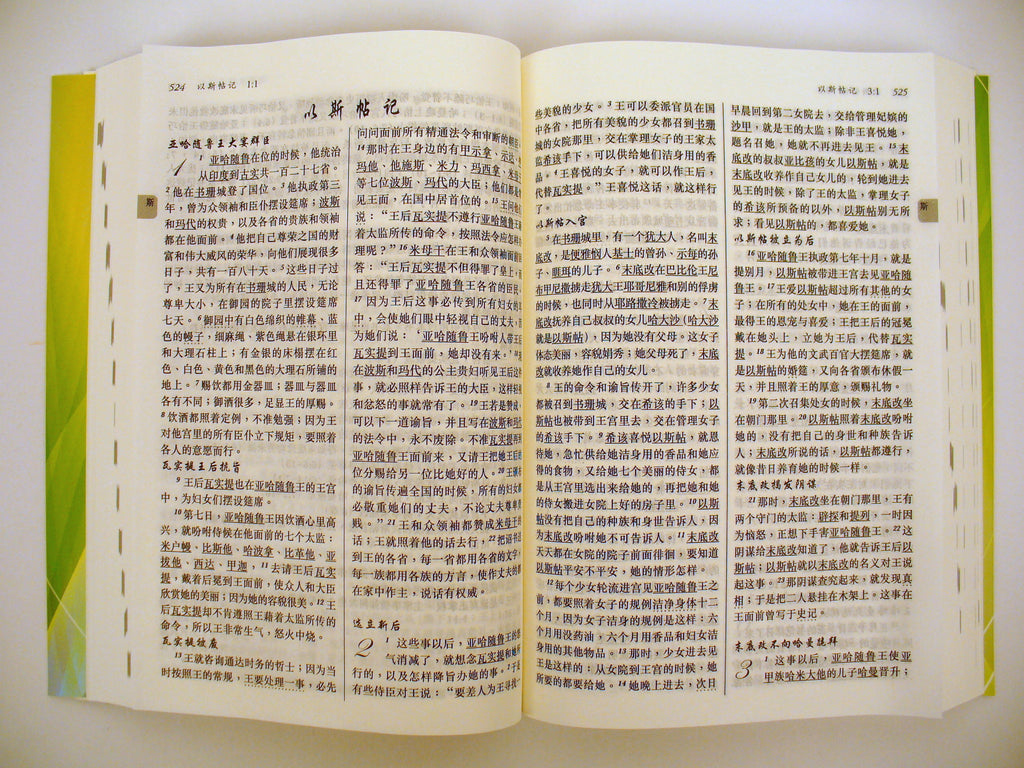 524 以斯帖记 1:1
以斯帖记
亚哈随鲁王大宴群臣
1 1 亚哈随鲁在位的时候，他统治
从印度到古实共一百二十七省。
2他在书珊城登了国位。3他执政第三
年，曾为众领袖和臣仆摆设筵席；波斯
和玛代的权贵，以及各省的贵族和领袖
都在他面前。4他把自己尊荣之国的财
富和伟大威风的荣华，向他们展现很多
日子，共有一百八十天。5这些日子过
了，王又为所有在书珊城的人民，无论
尊卑大小，在御园的院子里摆设筵席
七天。6御园中有白色绵织的帷幕，蓝
色的幔子，细麻绳、紫色绳悬在银环里
和大理石柱上；有金银的床榻摆在红
色、白色、黄色和黑色的大理石所铺的
地上。7赐饮都用金器皿；器皿与器皿
各有不同；御酒很多，足显王的厚赐。
8饮酒都照着定例，不准勉强；因为王
对他宫里的所有臣仆立下规矩，要照着
各人的意愿而行。
瓦实提王后抗旨
9王后瓦实提也在亚哈随鲁王的王宫
中，为妇女们摆设筵席。
10第七日，亚哈随鲁王因饮酒心里高
兴，就吩咐侍候在他面前的七个太监：
米户幔、比斯他、哈波拿、比革他、亚
拔他、西达、甲迦，11去请王后瓦实
提，戴着后冕到王面前，使众人和大臣
欣赏她的美丽；因为她的容貌很美。12王
后瓦实提却不肯遵照王藉着太监所传的
命令，所以王非常生气，怒火中烧。
瓦实提被废
13王就咨询通达时务的哲士；因为当
时按照王的常规，王要处理一事，必先
问问面前所有精通法令和审断的
14那时在王身边的有甲示拿、示达、
玛他、他施斯、米力、玛西拿、米
等七位波斯、玛代的大臣；他们都是
见王面，在国中居首位的。15王问他
说："王后瓦实提不遵行亚哈随鲁
着太监所传的命令，按照法令应怎样
理呢？"16米母干在王和众领袖面前
答："王后瓦实提不但得罪了皇上，
且还得罪了亚哈随鲁王各省的臣民，
17因为王后这事必传到所有妇女的
中，会使她们眼中轻视自己的丈夫，
为她们说：'亚哈随鲁王吩咐人带王后
瓦实提到王面前，她却没有来。'
在波斯和玛代的公主贵妇听见王后这
事，就必照样告诉王的大臣，这样轻
和忿怒的事就常有了。19王若是赞成，
可以下一道谕旨，并且写在波斯和玛代
的法令中，永不废除。不准瓦实提再
亚哈随鲁王面前来，又请王把她王后的
位分赐给另一位比她好的人。20王颁布
的谕旨传遍全国的时候，所有的妇女都
必敬重她们的丈夫，不论丈夫尊卑
贱。"21王和众领袖都赞成米母干的
话；王就照着他的话去行，22把诏书送
到王的各省，每一省都用各省的文字，
每一族都用各族的方言，使作丈夫的都
在家中作主，说话有权威。
选立新后
2 1 这些事以后，亚哈随鲁王的怒
气消减了，就想念瓦实提和她所
行的，以及怎样降旨办她的事。2于是
有些侍臣对王说："要差人为王寻找一
以斯帖记 3:1 525
些美貌的少女。3王可以委派官员在国
中各省，把所有美貌的少女都召到书珊
城的女院那里，交在掌理女子的王家太
监希该手下，可以供给她们洁身用的香
品。4王喜悦的女子，就可以作王后，
代替瓦实提。"王喜悦这话，就这样行
了。
以斯帖入宫
5在书珊城里，有一个犹大人，名叫末
底改，是便雅悯人基士的曾孙、示每的孙
子，睚珥的儿子。6末底改在巴比伦王尼
布甲尼撒掳走犹大王耶哥尼雅和别的俘虏
的时候，也同时从耶路撒冷被掳走。7末
底改抚养自己叔叔的女儿哈大沙（哈大沙
就是以斯帖），因为她没有父母。这女子
体态美丽，容貌娟秀；她父母死了，末底
改就收养她作自己的女儿。
8王的命令和谕旨传开了，许多少女
都被召到书珊城，交在希该的手下；以
斯帖也被带到王宫里去，交在管理女子
的希该手下。9希该喜悦以斯帖，就恩
待她，急忙供给她洁身用的香品和她应
得的食物，又给她七个美丽的侍女，都
是从王宫里选出来给她的，再把她和她
的侍女搬进女院上好的房子里。10以斯
帖没有把自己的种族和身世告诉人，因
为末底改吩咐她不可告诉人。11末底改
天天都在女院的院子前面徘徊，要知道
以斯帖平安不平安，她的情形怎样。
12每个少女轮流进宫见亚哈随鲁王之
前，都要照着女子的规例洁净身体十二
个月，因为女子洁身的规例是这样：六
个月用没药油，六个月用香品和妇女洁
身用的其他物品。13那时，少女进去见
王是这样的：从女院到王宫的时候，她
所要的都要给她。14她晚上进去，次日
早晨回到第二女院去，交给管理妃嫔的
沙甲，就是王的太监；除非王喜悦她，
题名召她，她就不再进去见王。15末
底改的叔叔亚比孩的女儿以斯帖，就是
末底改收养作自己女儿的，轮到她进去
见王的时候，除了王的太监，掌理女子
的希该所预备的以外，以斯帖别无所
求；看见以斯帖的，都喜爱她。
以斯帖被立为后
16亚哈随鲁王执政第七年十月，就是
提别月，以斯帖被带进王宫去见亚哈随
鲁王。17王爱以斯帖超过所有其他的女
子；在所有的处女中，她在王的面前，
最得王的恩宠与喜爱；王把王后的冠冕
戴在她头上，立她为王后，代替瓦实
提。18王为他的文武百官大摆筵席，就
是以斯帖的婚筵，又向各省颁布休假一
天，并且照着王的厚意，颁赐礼物。
19第二次召集处女的时候，末底改坐
在朝门那里。20以斯帖照着末底改吩咐
她的，没有把自己的身世和种族告诉
人；末底改所说的话，以斯帖都遵行，
就像昔日养育她的时候一样。
末底改揭发阴谋
21那时，末底改坐在朝门那里，王有
两个守门的太监：辟探和提列，一时因
为恼怒，正想下手害亚哈随鲁王。22这
阴谋给末底改知道了，他就告诉王后以
斯帖；以斯帖就以末底改的名义对王说
起这事。23那阴谋查究起来，就发现真
相；于是把二人悬挂在木架上。这事在
王面前曾写于史记。
末底改不向哈曼跪拜
3 1 这事以后，亚哈随鲁王使亚
甲族哈米大他的儿子哈曼晋升；
斯
斯